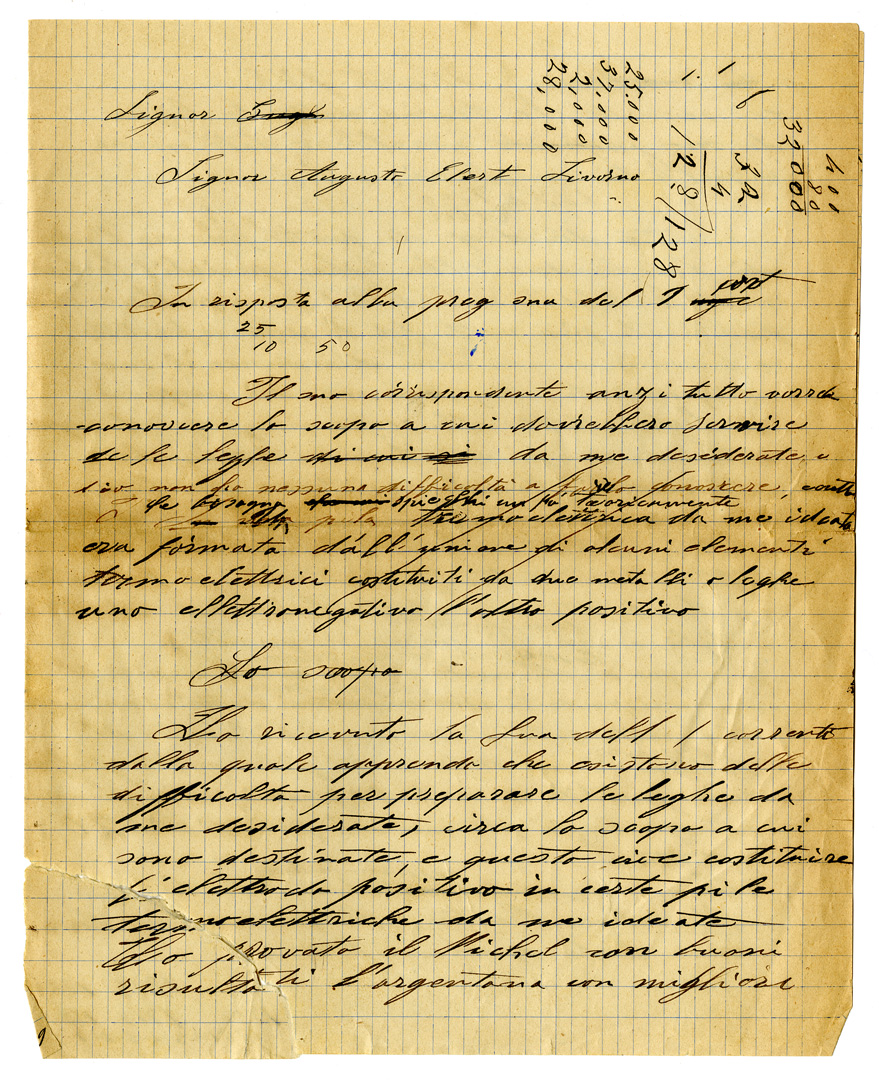 Signor
Signor Augusto Elert Livorno
25.000
37,000
2,000
28,000
1
1.
6
32
4
128/128
400
80
32000
In risposta alla preg sua del 9 corr
25
10 50
Il suo corrispondente anzi tutto vorrà
conoscere lo scopo a cui dovrebbero servire
le leghe di cui si da me desiderate, e
ciò non ho nessuna difficoltà a farlo conoscere,
pila termoelettrica da me ideata
era formata dall'unione di alcuni elementi
termo elettrici costituiti da due metalli o leghe
uno ellettronegativo l'altro positivo
Lo scopo
Ho ricevuto la sua dell 1 corrente
dalla quale apprendo che esistono delle
difficoltà per preparare le leghe da
me desiderate, circa lo scopo a cui
sono destinate, e questo cioe costituire
l'elettrodo positivo in certe pile
termoelettriche da me ideate
Ho provato il Nichel con buoni
risultati l'argentana con migliori